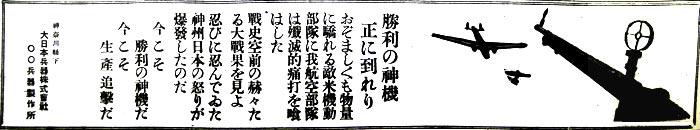 勝利の神機
正に到れり
おぞましくも物量
に驕れる敵米機動
部隊に我航空部隊
は殲滅的痛打を喰
はした
戦史空前の赫々た
る大戦果を見よ
忍びに忍んでゐた
神州日本の怒りが
爆發したのだ
今こそ
勝利の神機だ
今こそ
生産追撃だ
神奈川縣下
大日本兵器株式會社
〇〇兵器製作所